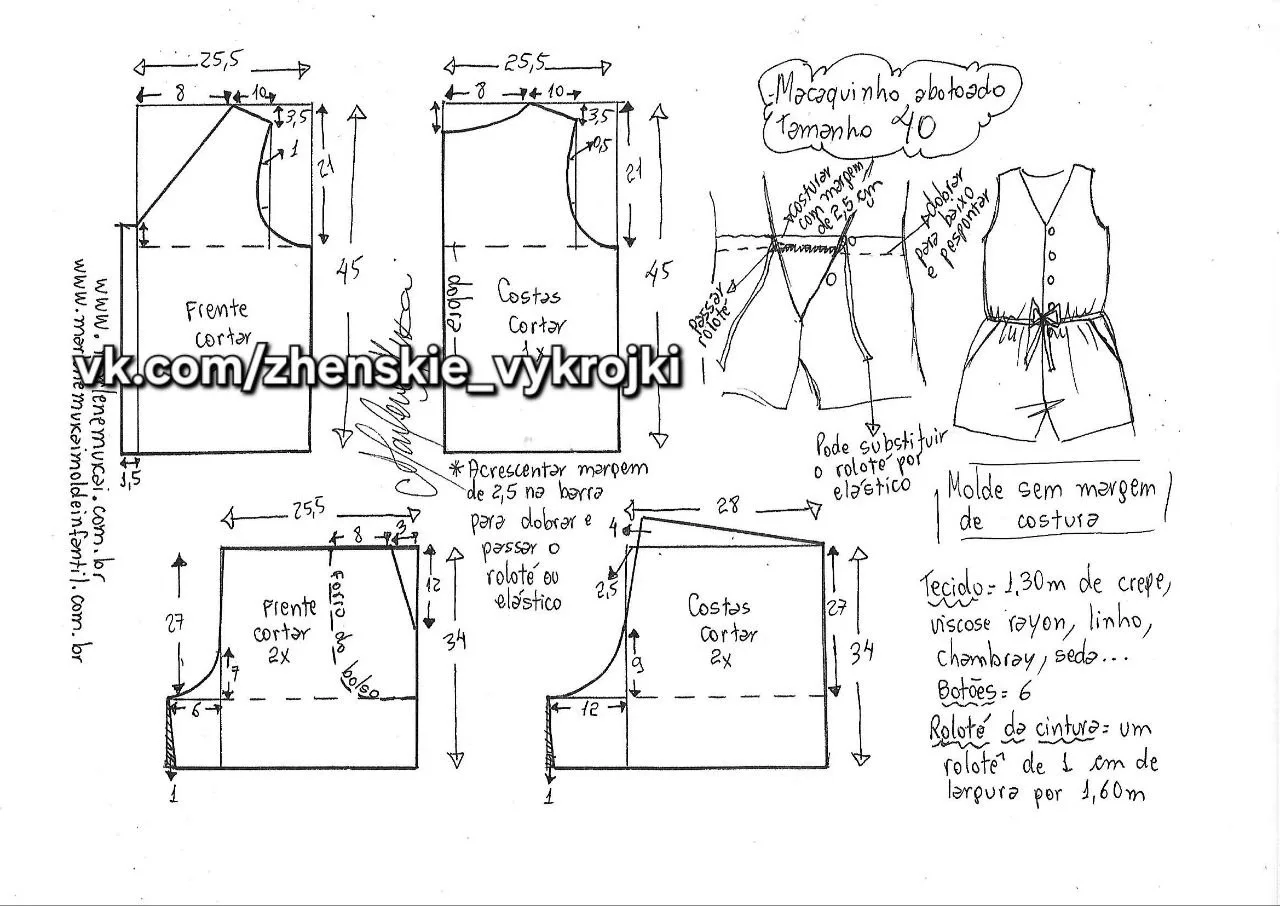 25,5
8
10
3,5
1
21
45
Frente
cortar
1,5
25,5
8
10
3,5
0,5
21
45
dobra
Costas
cortar
1x
-Macaquinho abotoado
Tamanho 40
costurar
com margem
de 2,5 cm
dobrar
para baixo
e pespontar
passar
roloté
Pode substituir
o roloté por
elástico
vk.com/zhenskie_vykrojki
www.marlenemukai.com.br
www.marlenemukaimoldeinfantil.com.br
* Acrescentar margem
de 2,5 na barra
para dobrar e
passar o
roloté ou
elástico
25,5
8
3
12
27
34
Frente
cortar
2x
Forro do
bolso
7
6
1
28
4
2,5
27
34
Costas
cortar
2x
9
12
1
Molde sem margem
de costura
Tecido = 1,30m de crepe,
viscose rayon, linho,
chambray, seda...
Botões = 6
Roloté da cintura = um
roloté de 1 cm de
largura por 1,60m